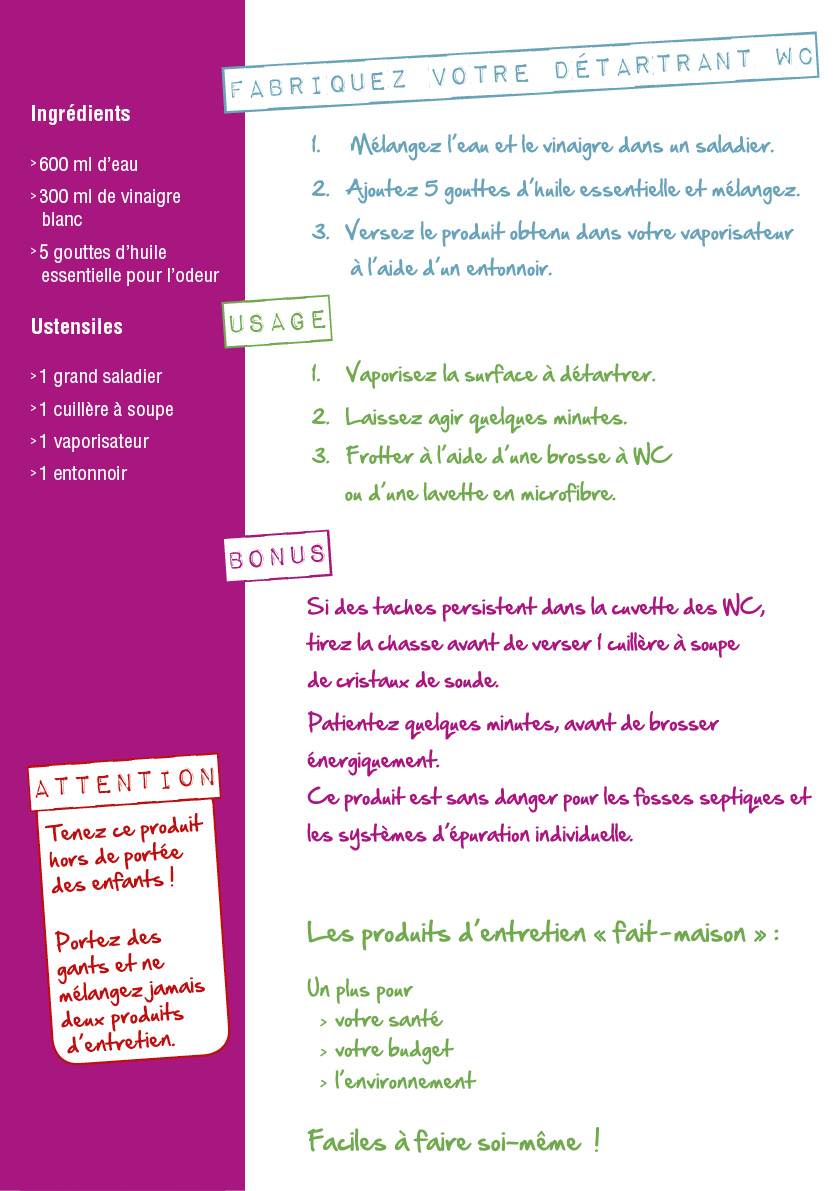 FABRIQUEZ VOTRE DÉTARTRANT WC
Ingrédients
> 600 ml d'eau
> 300 ml de vinaigre
blanc
> 5 gouttes d'huile
essentielle pour l'odeur
Ustensiles
> 1 grand saladier
> 1 cuillère à soupe
> 1 vaporisateur
> 1 entonnoir
1. Mélangez l'eau et le vinaigre dans un saladier.
2. Ajoutez 5 gouttes d'huile essentielle et mélangez.
3. Versez le produit obtenu dans votre vaporisateur
à l'aide d'un entonnoir.
USAGE
1. Vaporisez la surface à détartrer.
2. Laissez agir quelques minutes.
3. Frotter à l'aide d'une brosse à WC
ou d'une lavette en microfibre.
BONUS
Si des taches persistent dans la cuvette des WC,
tirez la chasse avant de verser 1 cuillère à soupe
de cristaux de soude.
Patientez quelques minutes, avant de brosser
énergiquement.
Ce produit est sans danger pour les fosses septiques et
les systèmes d'épuration individuelle.
ATTENTION
Tenez ce produit
hors de portée
des enfants !
Portez des
gants et ne
mélangez jamais
deux produits
d'entretien.
Les produits d'entretien « fait-maison » :
Un plus pour
> votre santé
> votre budget
> l'environnement
Faciles à faire soi-même !